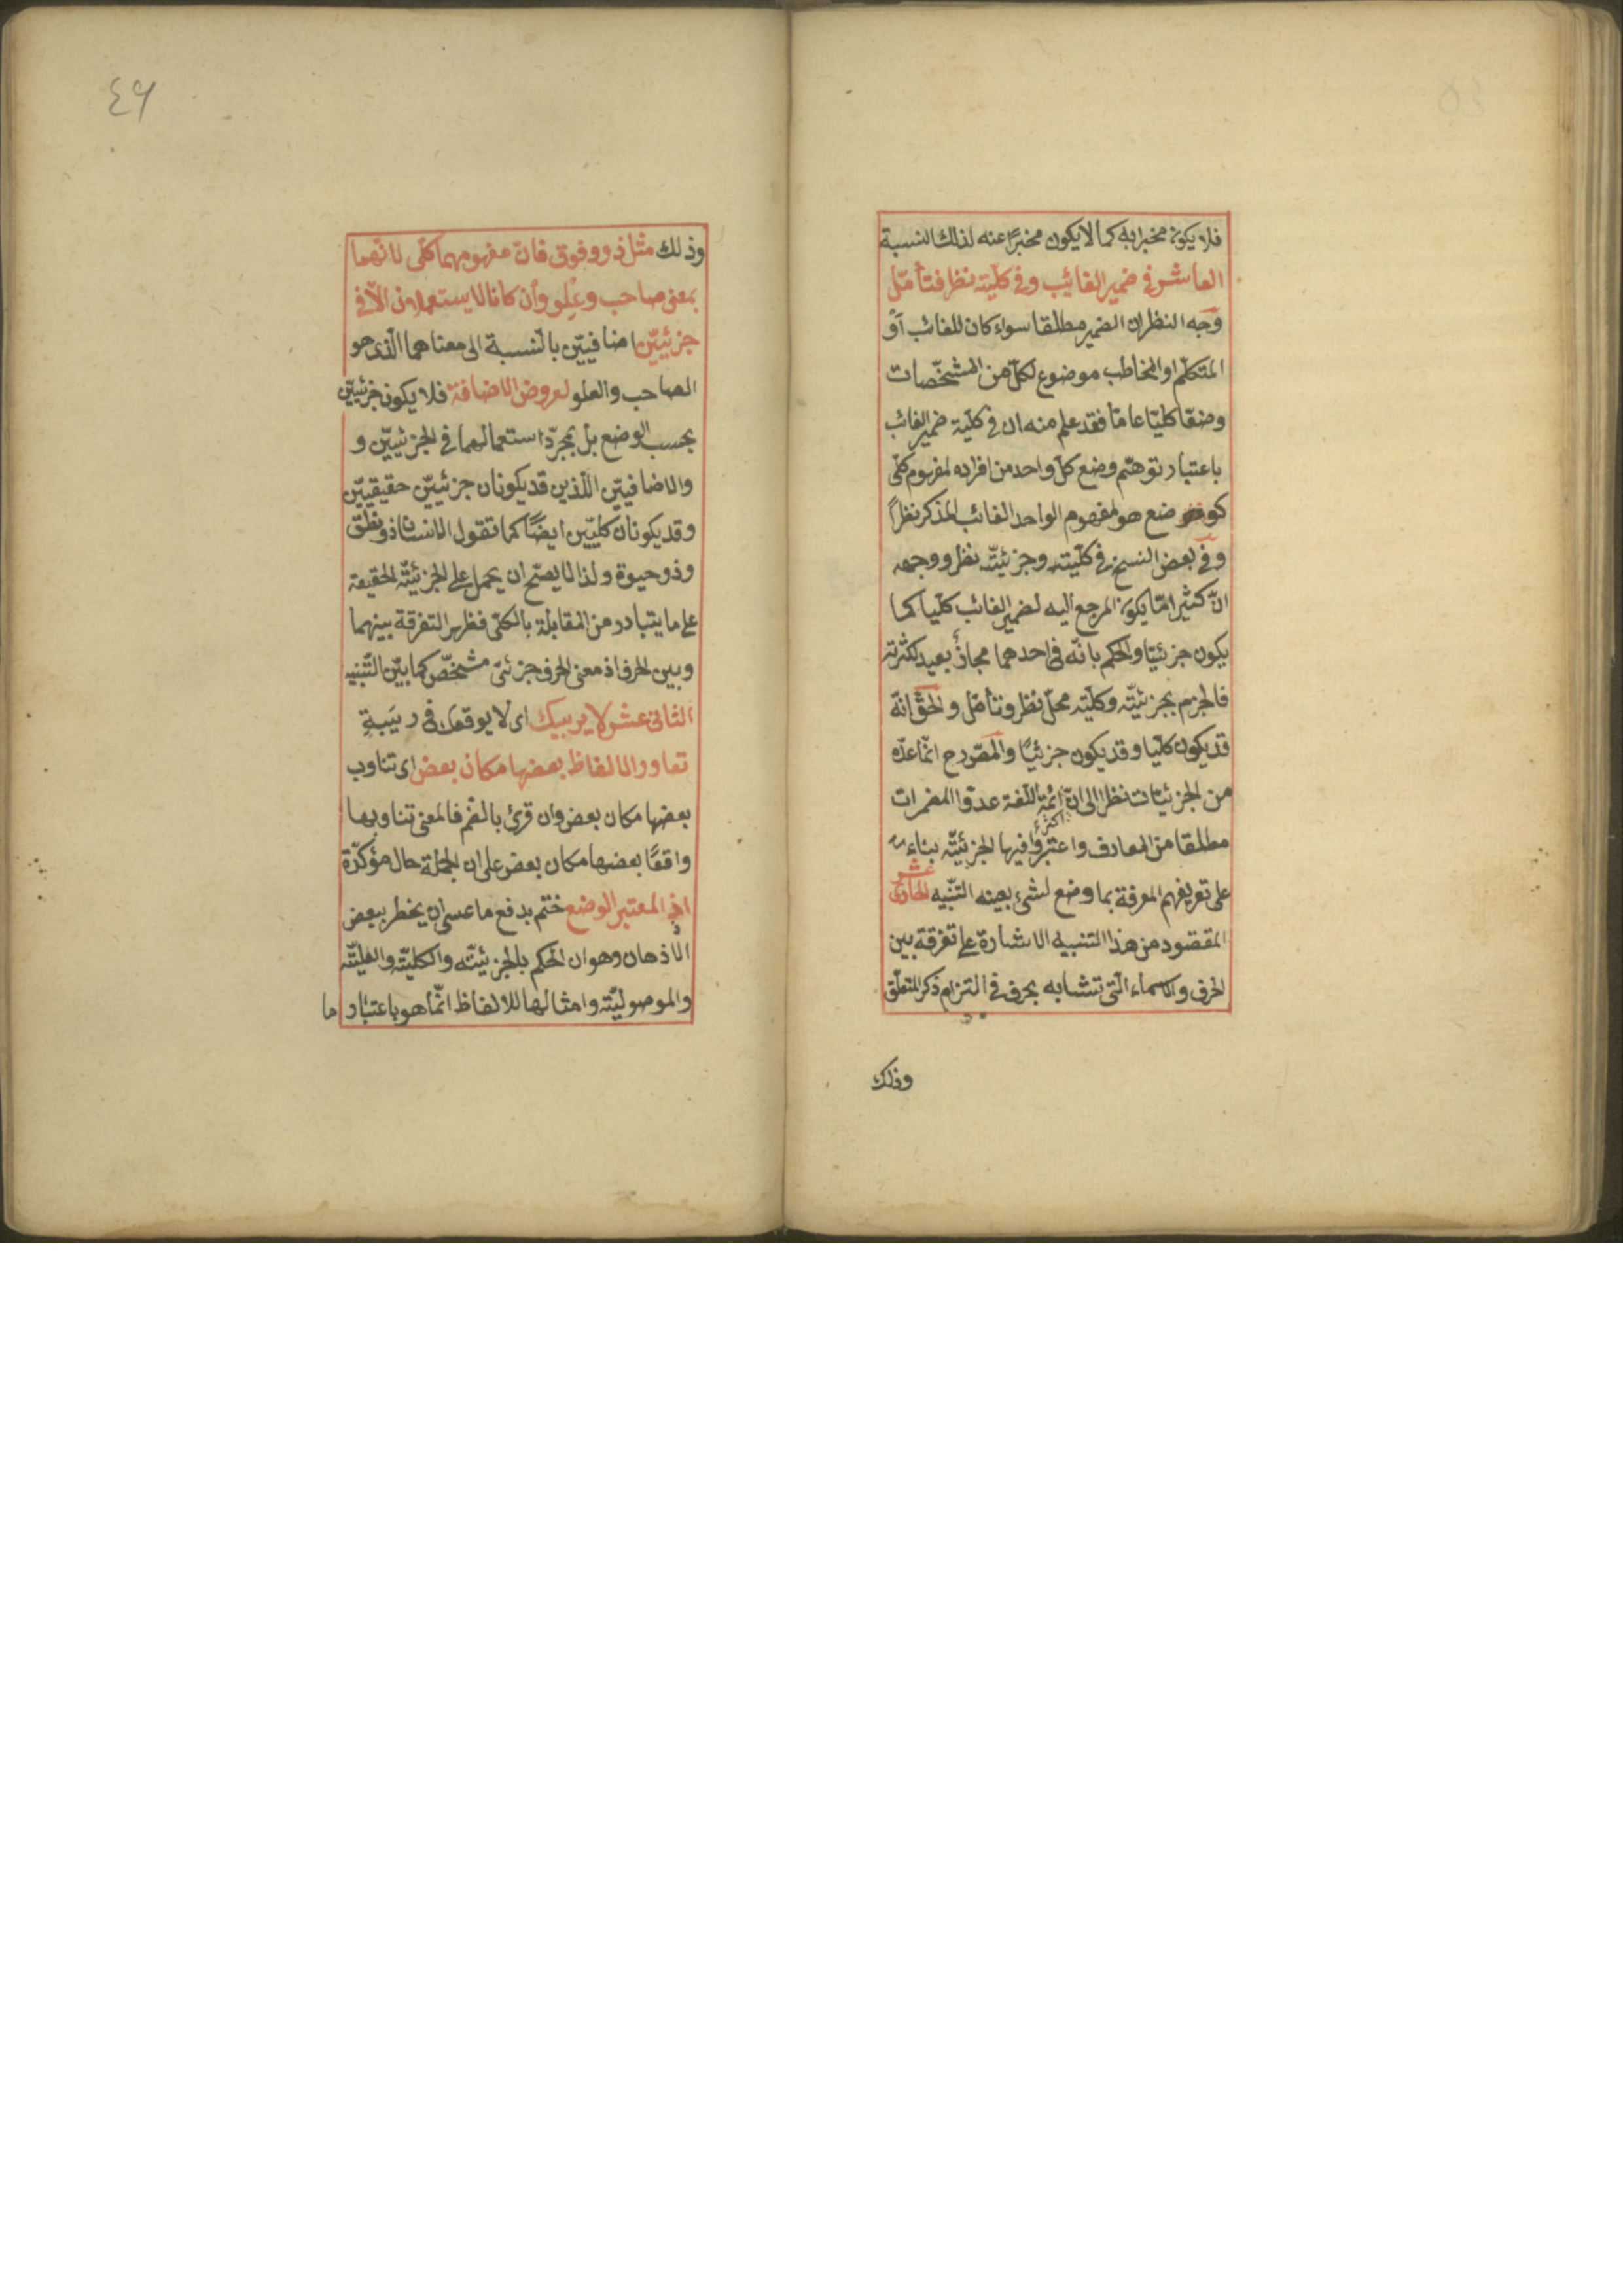 فلا يكون مخبرا به كما لا يكون مخبرًا عنه لذلك النسبة
العاشر في ضمير الغائب وفي كليّته نظر فتأمّل
وجه النظر ان الضمير مطلقا سواء كان للغائب أو
المتكلّم او المخاطب موضوع لكلّ من المشخّصات
وضعًا كليّا عامّا فقد علم منه ان في كليّة ضمير الغائب
باعتبار توهّم وضع كلّ واحد من افراده لمفهوم كلّى
كوضع هو لمفهوم الواحد الغائب المذكر نظرًا
وفي بعض النسخ في كليّته وجزئيّته نظر ووجهه
انّ كثيرا مّا يكون المرجع اليه لضمير الغائب كليّا كما
يكون جزئيّا والحكم بانّه في احدهما مجاز بعيد لكثرته
فالجزم بجزئيّته وكليّته محلّ نظر وتأمّل والحقّ انّه
قد يكون كليّا وقد يكون جزئيّا والمصّ رح انّما عدّه
من الجزئيّات نظرا الى انّ ائمّة اللّغة عدّوا المضمرات
اكثر
مطلقا من المعارف واعتبروا فيها الجزئيّة بناء
على تعريفهم المعرفة بما وضع لشىء بعينه التنبيه الحادى عشر
المقصود من هذا التنبيه الاشارة على تفرقة بين
الحرف والاسماء الّتى تتشابه بحرف في التزام ذكر المتعلّق
وذلك
٤٩
وذلك مثل ذو وفوق فانّ مفهومهما كلّى لانّهما
بمعنى صاحب وعلو وأن كانا لا يستعملان الّا في
جزئيّين اضافيّين بالنسبة الى معناهما الّذى هو
الصاحب والعلو لعروض الاضافة فلا يكون جزئيّين
بحسب الوضع بل بمجرّد استعمالهما في الجزئيّين و
والاضافيّين اللّذين قد يكونان جزئيّين حقيقيّين
وقد يكونان كليّين ايضًا كما تقول الانسان ذو نطق
وذو حيوة ولذا لا يصحّ ان يحمل على الجزئيّة الحقيقة
على ما يتبادر من المقابلة بالكلّى فظهر التفرقة بينهما
وبين الحرف اذ معنى الحرف جزئىّ مشخّص كما بيّن التّنبيه
الثانى عشر لا يريبك اى لا يوقعك في ريبة
تعاور الالفاظ بعضها مكان بعض اى تناوب
بعضها مكان بعض وان قرئ بالضّم فالمعنى تناوبها
واقعًا بعضها مكان بعض على ان الجملة حال مؤكّدة
اذ المعتبر الوضع ختم بدفع ما عسى ان يخطر ببعض
الاذهان وهو ان الحكم بالجزئيّة والكليّة والعلميّة
والموصوليّة وامثالها للالفاظ انّما هو باعتبار ما